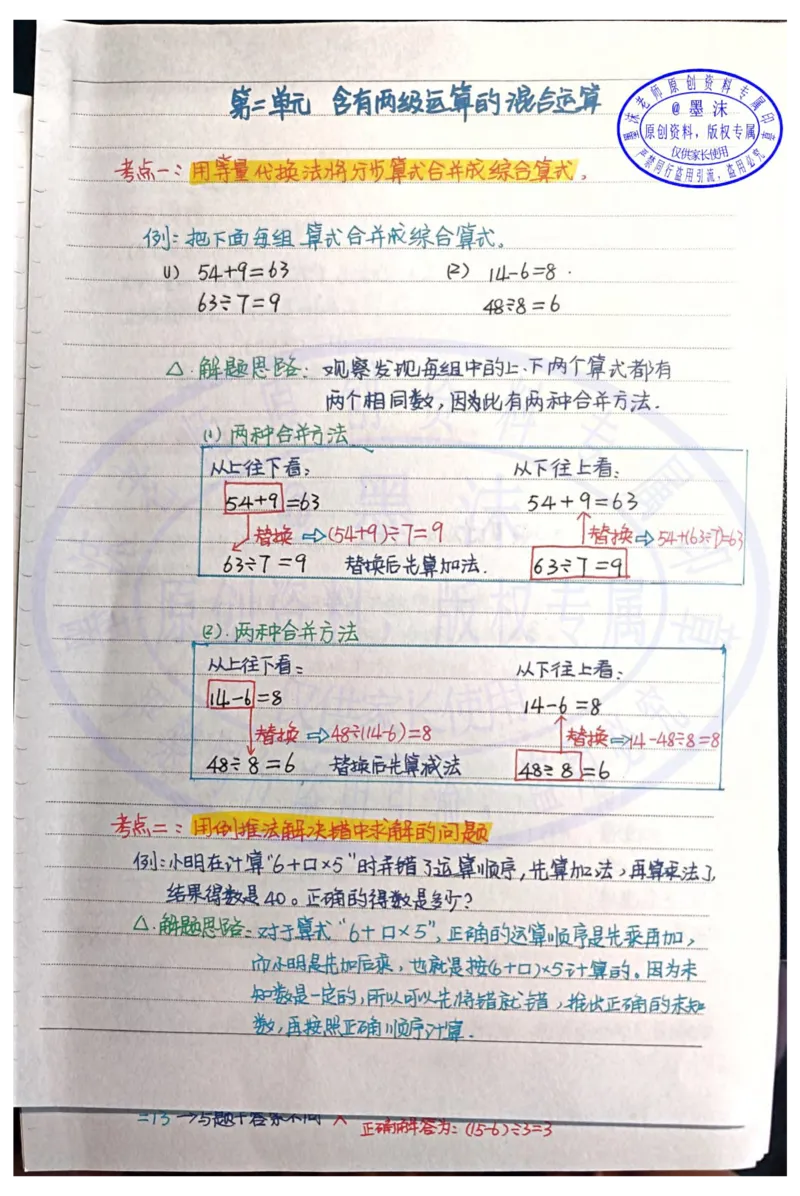 第二单元 含有两级运算的混合运算
墨沫老师原创资料专属印章
@墨沫
原创资料，版权专属
仅供家长使用
严禁同行盗用引流，盗用必究
考点一：用等量代换法将分步算式合并成综合算式。
例：把下面每组算式合并成综合算式。
(1) 54+9=63 (2) 14-6=8
63÷7=9 48÷8=6
△.解题思路：观察发现每组中的上、下两个算式都有
两个相同数，因为此有两种合并方法.
(1) 两种合并方法
从上往下看： 从下往上看：
54+9=63 54+9=63
替换⇒(54+9)÷7=9 替换⇒54+(63÷7)=63
63÷7=9 替换后先算加法. 63÷7=9
(2).两种合并方法
从上往下看： 从下往上看：
14-6=8 14-6=8
替换⇒48÷(14-6)=8 替换⇒14-48÷8=8
48÷8=6 替换后先算减法 48÷8=6
考点二：用倒推法解决错中求解的问题
例：小明在计算“6+口×5”时弄错了运算顺序，先算加法，再算乘法了，
结果得数是40。正确的得数是多少？
△.解题思路：对于算式“6+口×5”，正确的运算顺序是先乘再加，
而小明是先加后乘，也就是按(6+口)×5计算的。因为未
知数是一定的，所以可以先将错就错，推出正确的未知
数，再按照正确顺序计算.
=13→与题干答案不同 × 正确解答为：(15-6)÷3=3